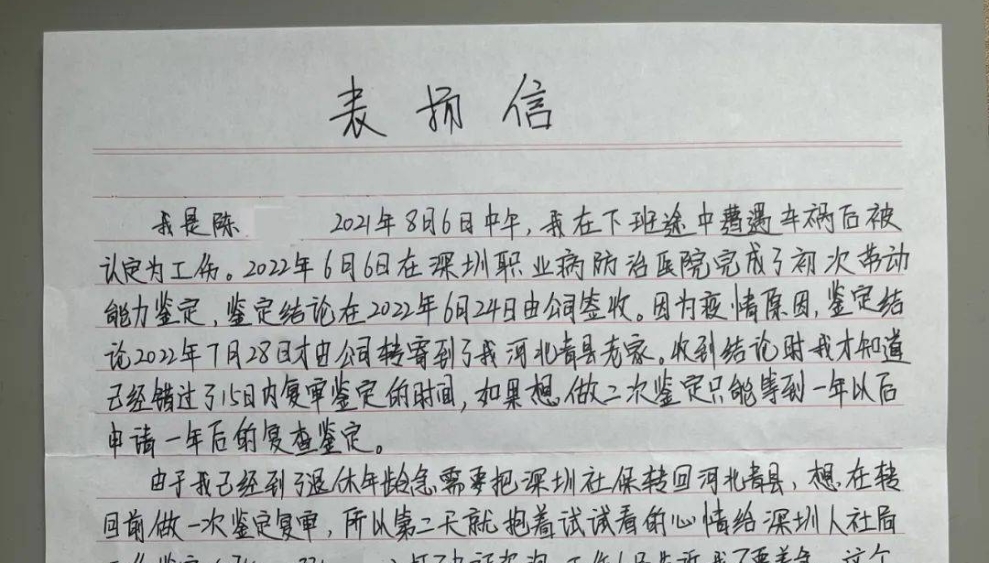 表扬信
我是陈 2021年8月6日中午，我在下班途中遭遇车祸后被
认定为工伤。2022年6月6日在深圳职业病防治医院完成了初次劳动
能力鉴定，鉴定结论在2022年6月24日由公司签收。因为疫情原因，鉴定结
论2022年7月28日才由公司转寄到了我河北青县老家。收到结论时我才知道
已经错过了15日内复审鉴定的时间，如果想做二次鉴定只能等到一年以后
申请一年后的复查鉴定。
由于我已经到了退休年龄急需要把深圳社保转回河北青县，想在转
回前做一次鉴定复审，所以第二天就抱着试试看的心情给深圳人社局